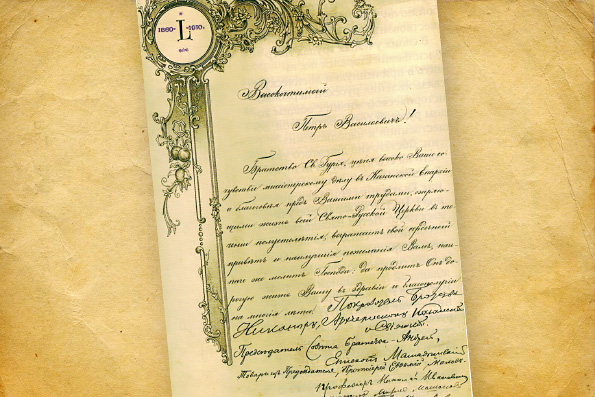 1860-1910.
L
Высокочтимый
Петръ Васильевичъ!
Братство Св. Гурія, цѣня высоко Ваше со-
чувствіе миссіонерскому дѣлу въ Казанской Епархіи
и благоговѣя предъ Вашими трудами,
жизнь всей Свято-Русской Церкви въ те-
ченіи полустолѣтія, выражаетъ свой сердечный
привѣтъ и наилучшія пожеланія Вамъ,
че же молитъ Господа: да продлитъ Онъ до-
рогую жизнь Вашу въ здравіи и благополучіи
на многія лѣта. Покровитель Братства
Никаноръ, Архіепископъ Казанскій
и Свіяжскій.
Предсѣдатель Совѣта Братства Андрей,
Епископъ Мамадышскій
Товарищ Предсѣдателя, Протоіерей
Профессоръ